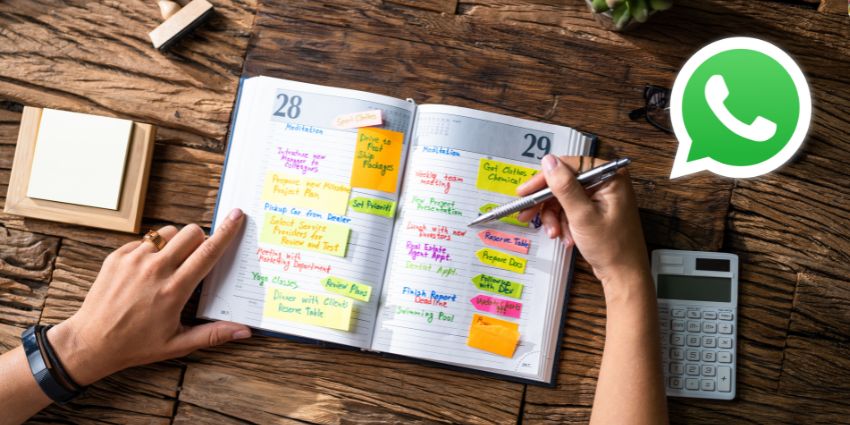 28
Send Clothes
Meditation
Drive to
Post
Ship
Packages
Introduce new
Manager to
Colleagues
Prepare new
Project Plan
Set Priority!
Pickup Car from Dealer
Select Service
Providers for
Review and Test
Meeting with
Marketing Department
Yoga Classes
Review Plans
Dinner with Clients
Reserve Table
29
Meditation
Get Clothes
Chemical
Weekly team
meeting
New Project
Presentation
Lunch with new
Investors
Reserve Table
Real Estate
Agent Appt.
Prepare Docs
Dentist Appt.
Followup
with Dev
Finish Report
Deadline
Swimming Pool